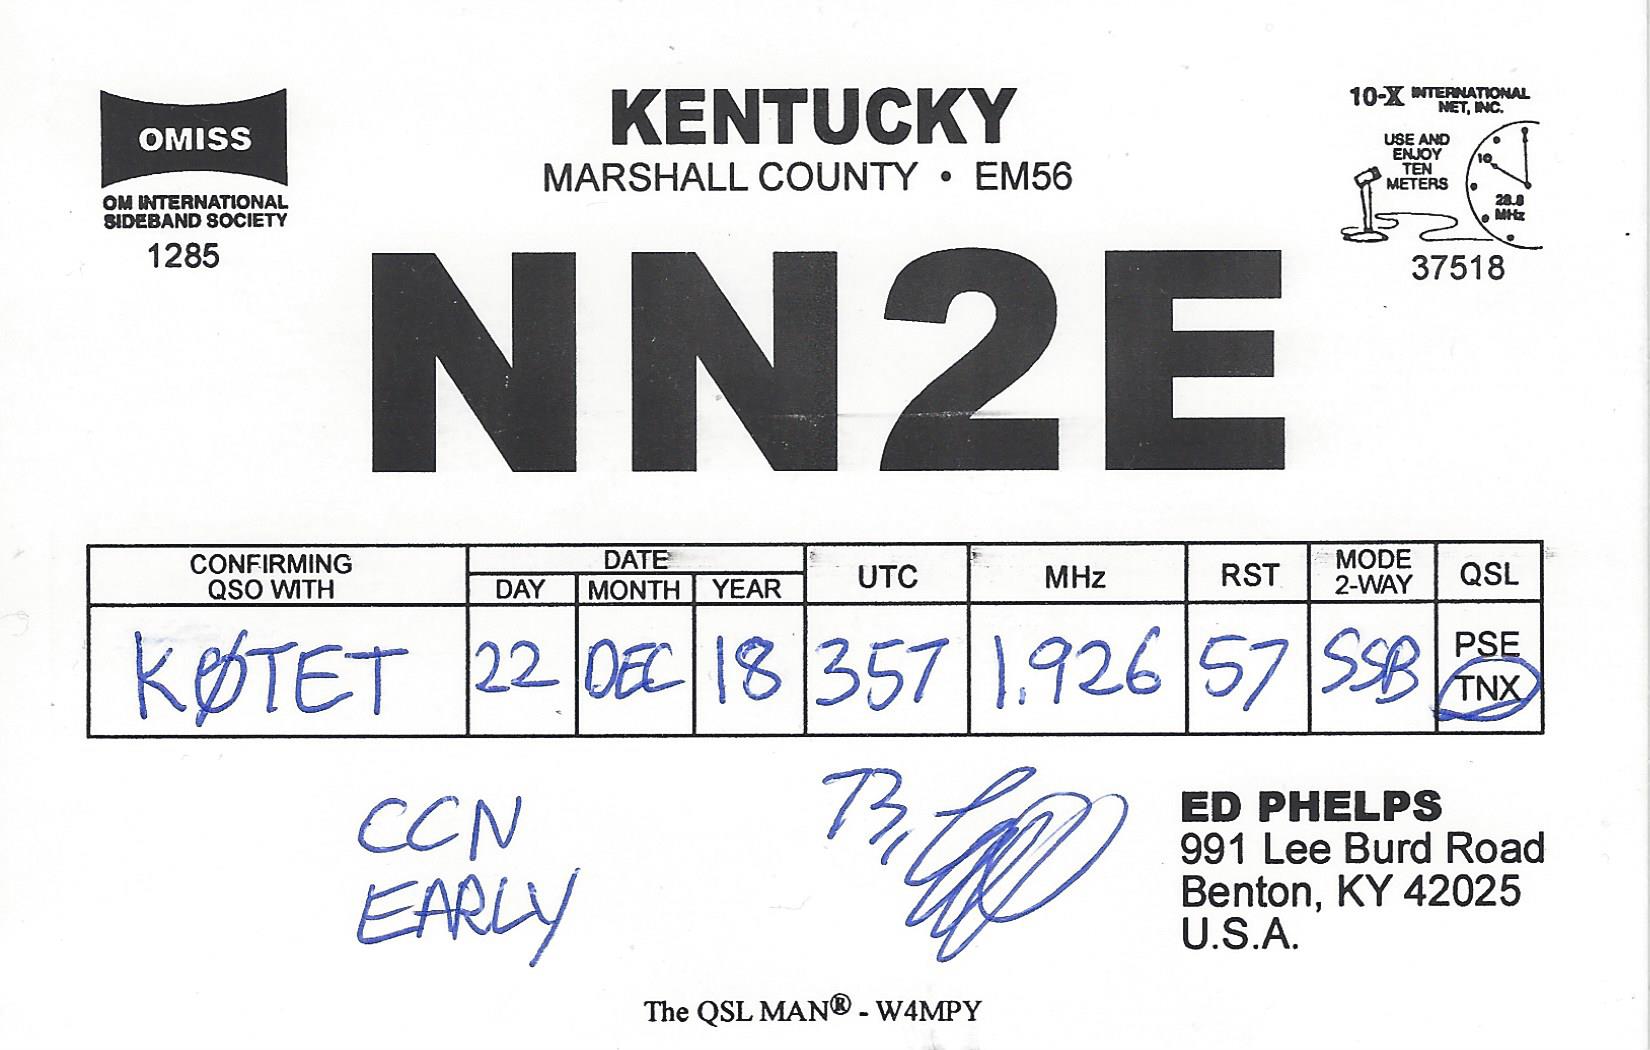 OMISS
OM INTERNATIONAL
SIDEBAND SOCIETY
1285
KENTUCKY
MARSHALL COUNTY • EM56
10-X INTERNATIONAL
NET, INC.
USE AND
ENJOY
TEN
METERS
10
28.8
MHz
37518
NN2E
CONFIRMING
QSO WITH
DATE
DAY MONTH YEAR
UTC
MHz
RST
MODE
2-WAY
QSL
KØTET 22 DEC 18 357 1.926 57 SSB
PSE
TNX
CCN
EARLY
73,
ED PHELPS
991 Lee Burd Road
Benton, KY 42025
U.S.A.
The QSL MAN® - W4MPY